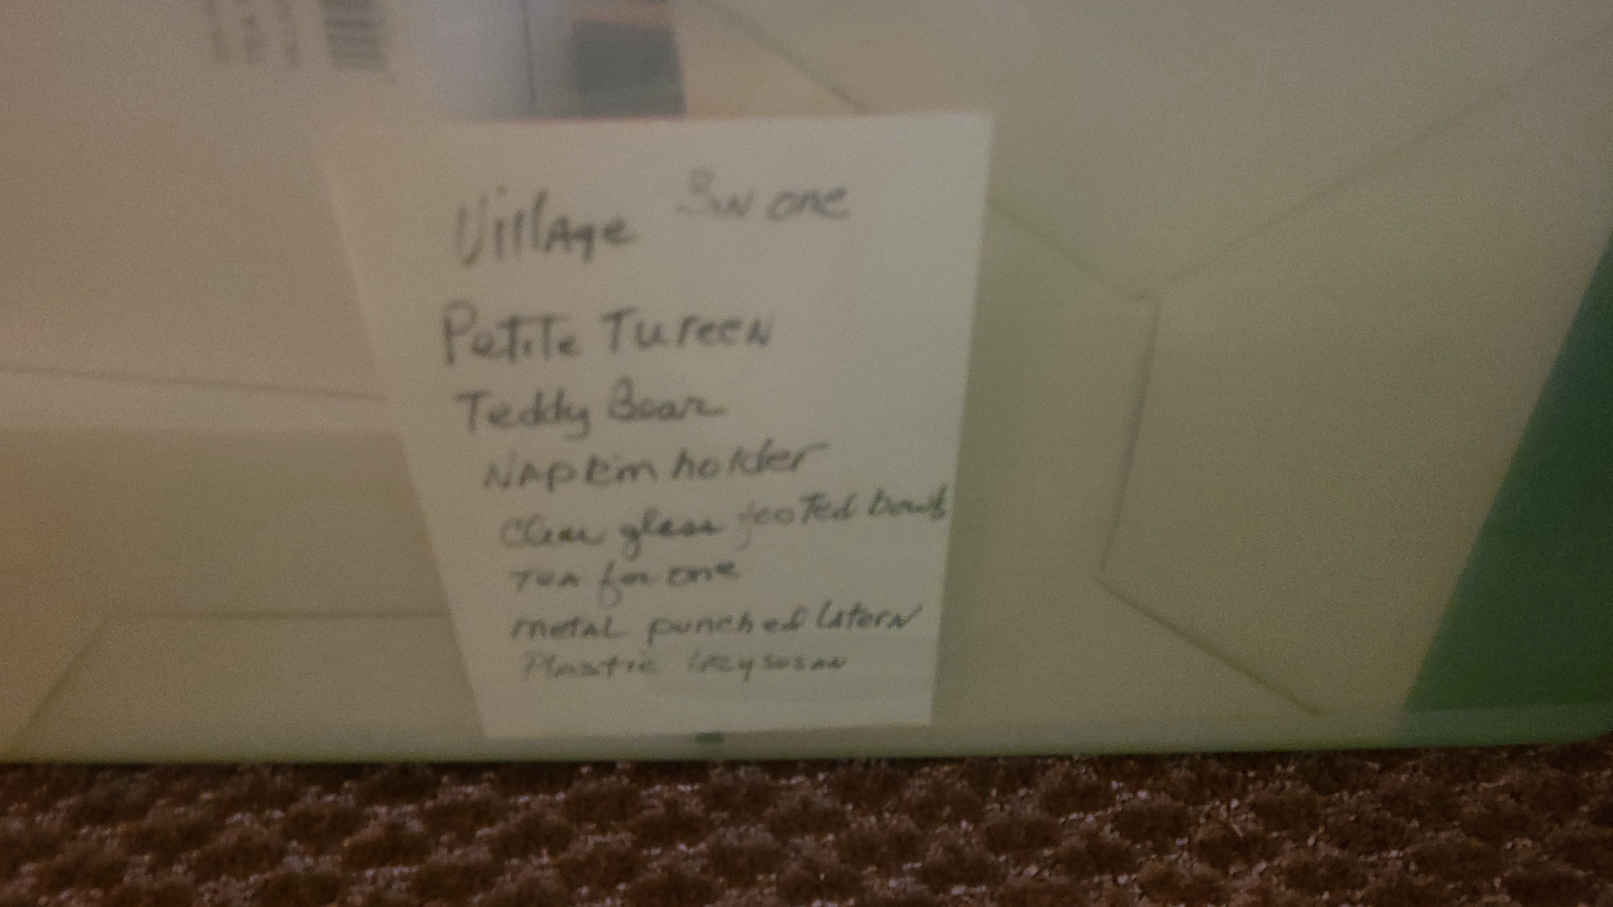 Village 3 IN one
Petite Tureen
Teddy Bear
Napkin holder
Clear glass footed bowls
Tea for one
metal punched latern
Plastic lazy susan